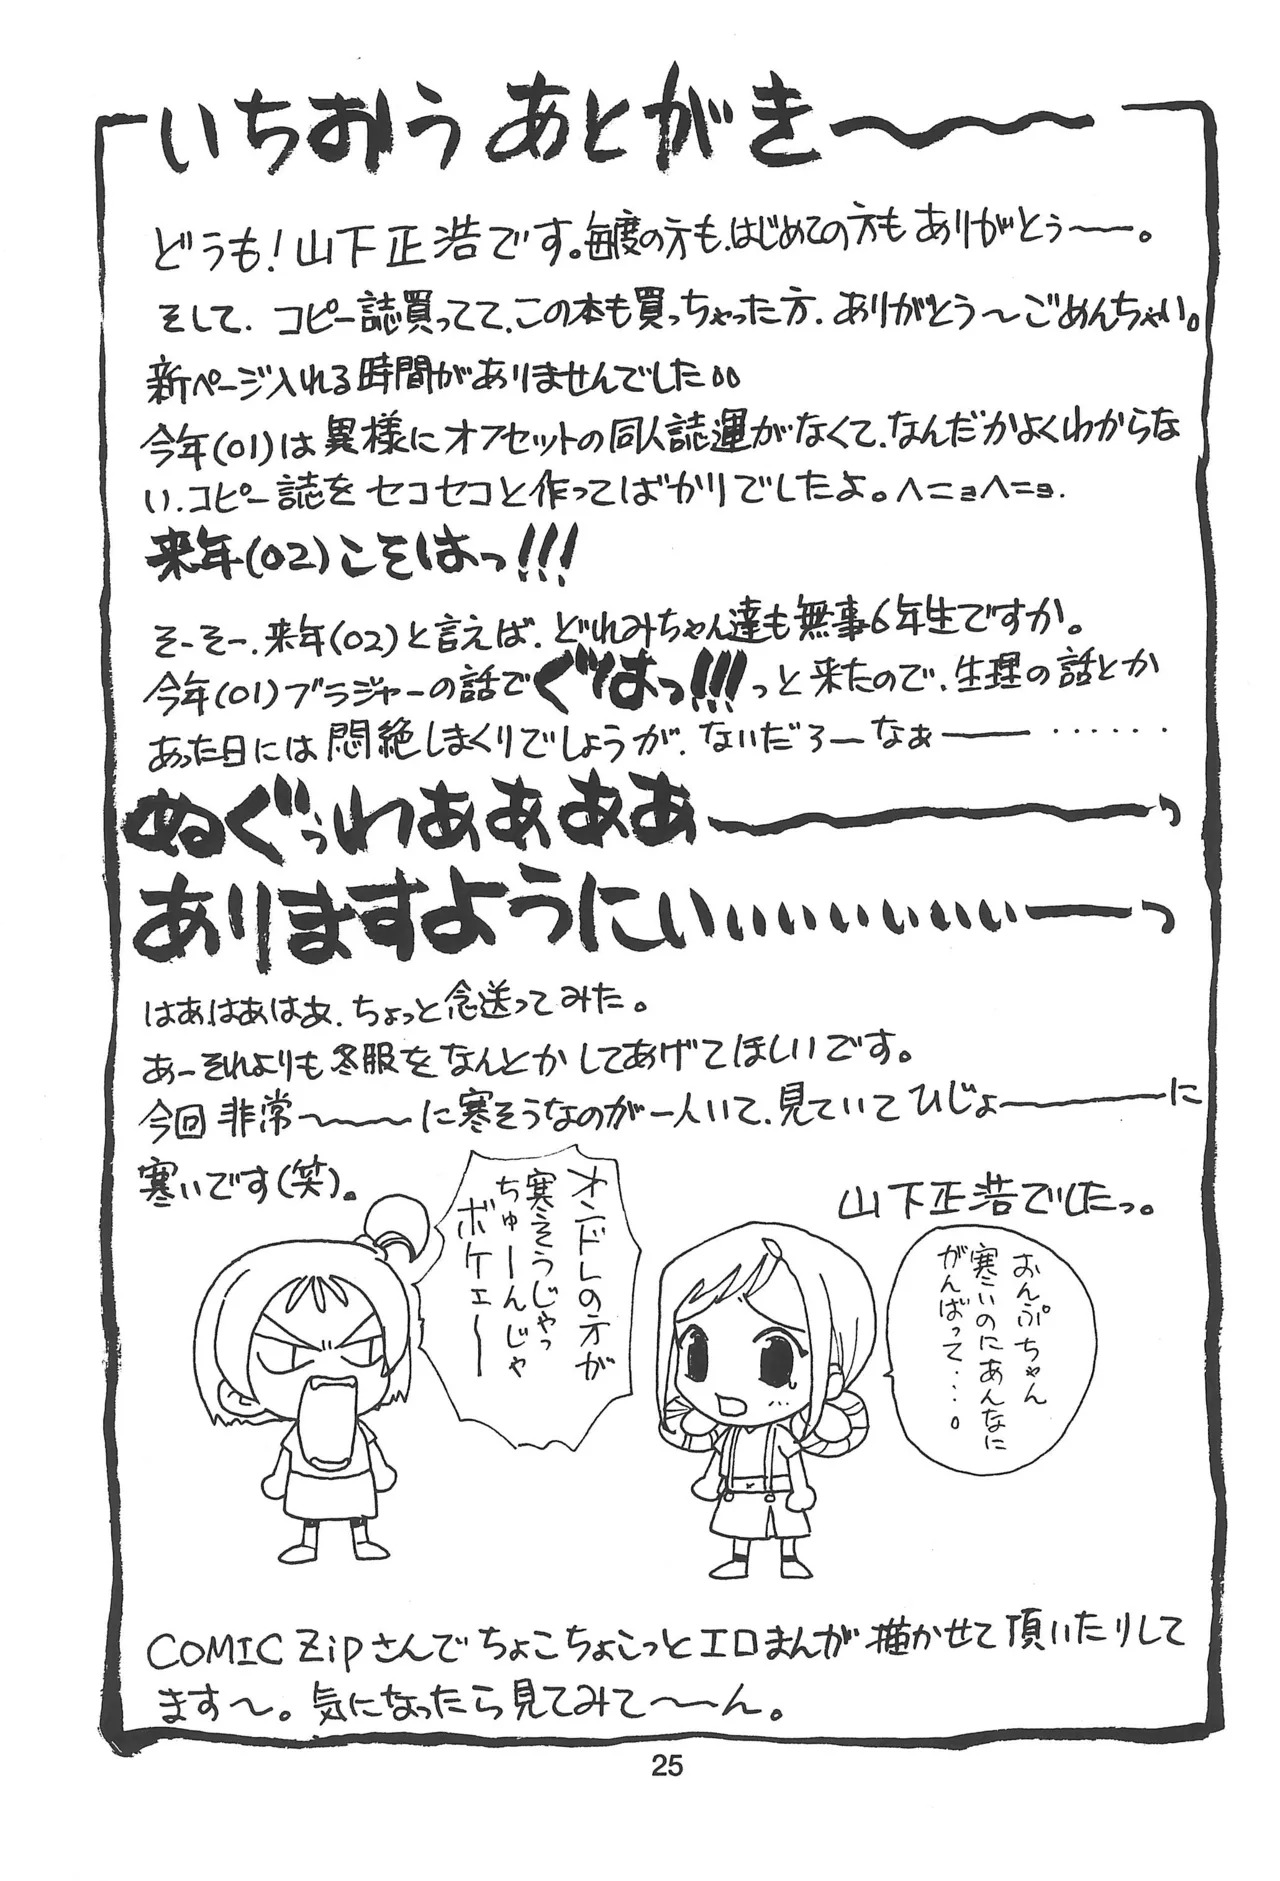 いちおうあとがき〜〜〜
どうも!山下正浩です。毎度の方も、はじめての方もありがとぅ——。
そして、コピー誌買ってて、この本も買っちゃった方、ありがとう〜ごめんちゃい。
新ページ入れる時間がありませんでした。。
今年(01)は異様にオフセットの同人誌運がなくて、なんだかよくわからな
い、コピー誌をセコセコと作ってばかりでしたよ。へニョへニョ.
来年(02)こそはっ!!!
そーそー、来年(02)と言えば、どれみちゃん達も無事6年生ですか。
今年(01)ブラジャーの話でぐはっ!!!っと来たので、生理の話とか
あった日には悶絶しまくりでしょうが、ないだろーなぁ——……
ぬぐぅわぁぁぁあ————っ
ありますようにぃぃぃぃぃぃぃぃーっ
はあはあはあ、ちょっと念送ってみた。
あーそれよりも冬服をなんとかしてあげてほしいです。
今回非常〜〜に寒そうなのが一人いて、見ていてひじょ——に
寒いです(笑)。
山下正浩でしたっ。
オンドレの方が
寒そうじゃっ
ちゅーんじゃ
ボケェー
おんぷちゃん
寒いのにあんなに
がんばって…。
COMIC Zipさんでちょこちょこっとエロまんが描かせて頂いたりして
ます〜。気になったら見てみて〜ん。
25